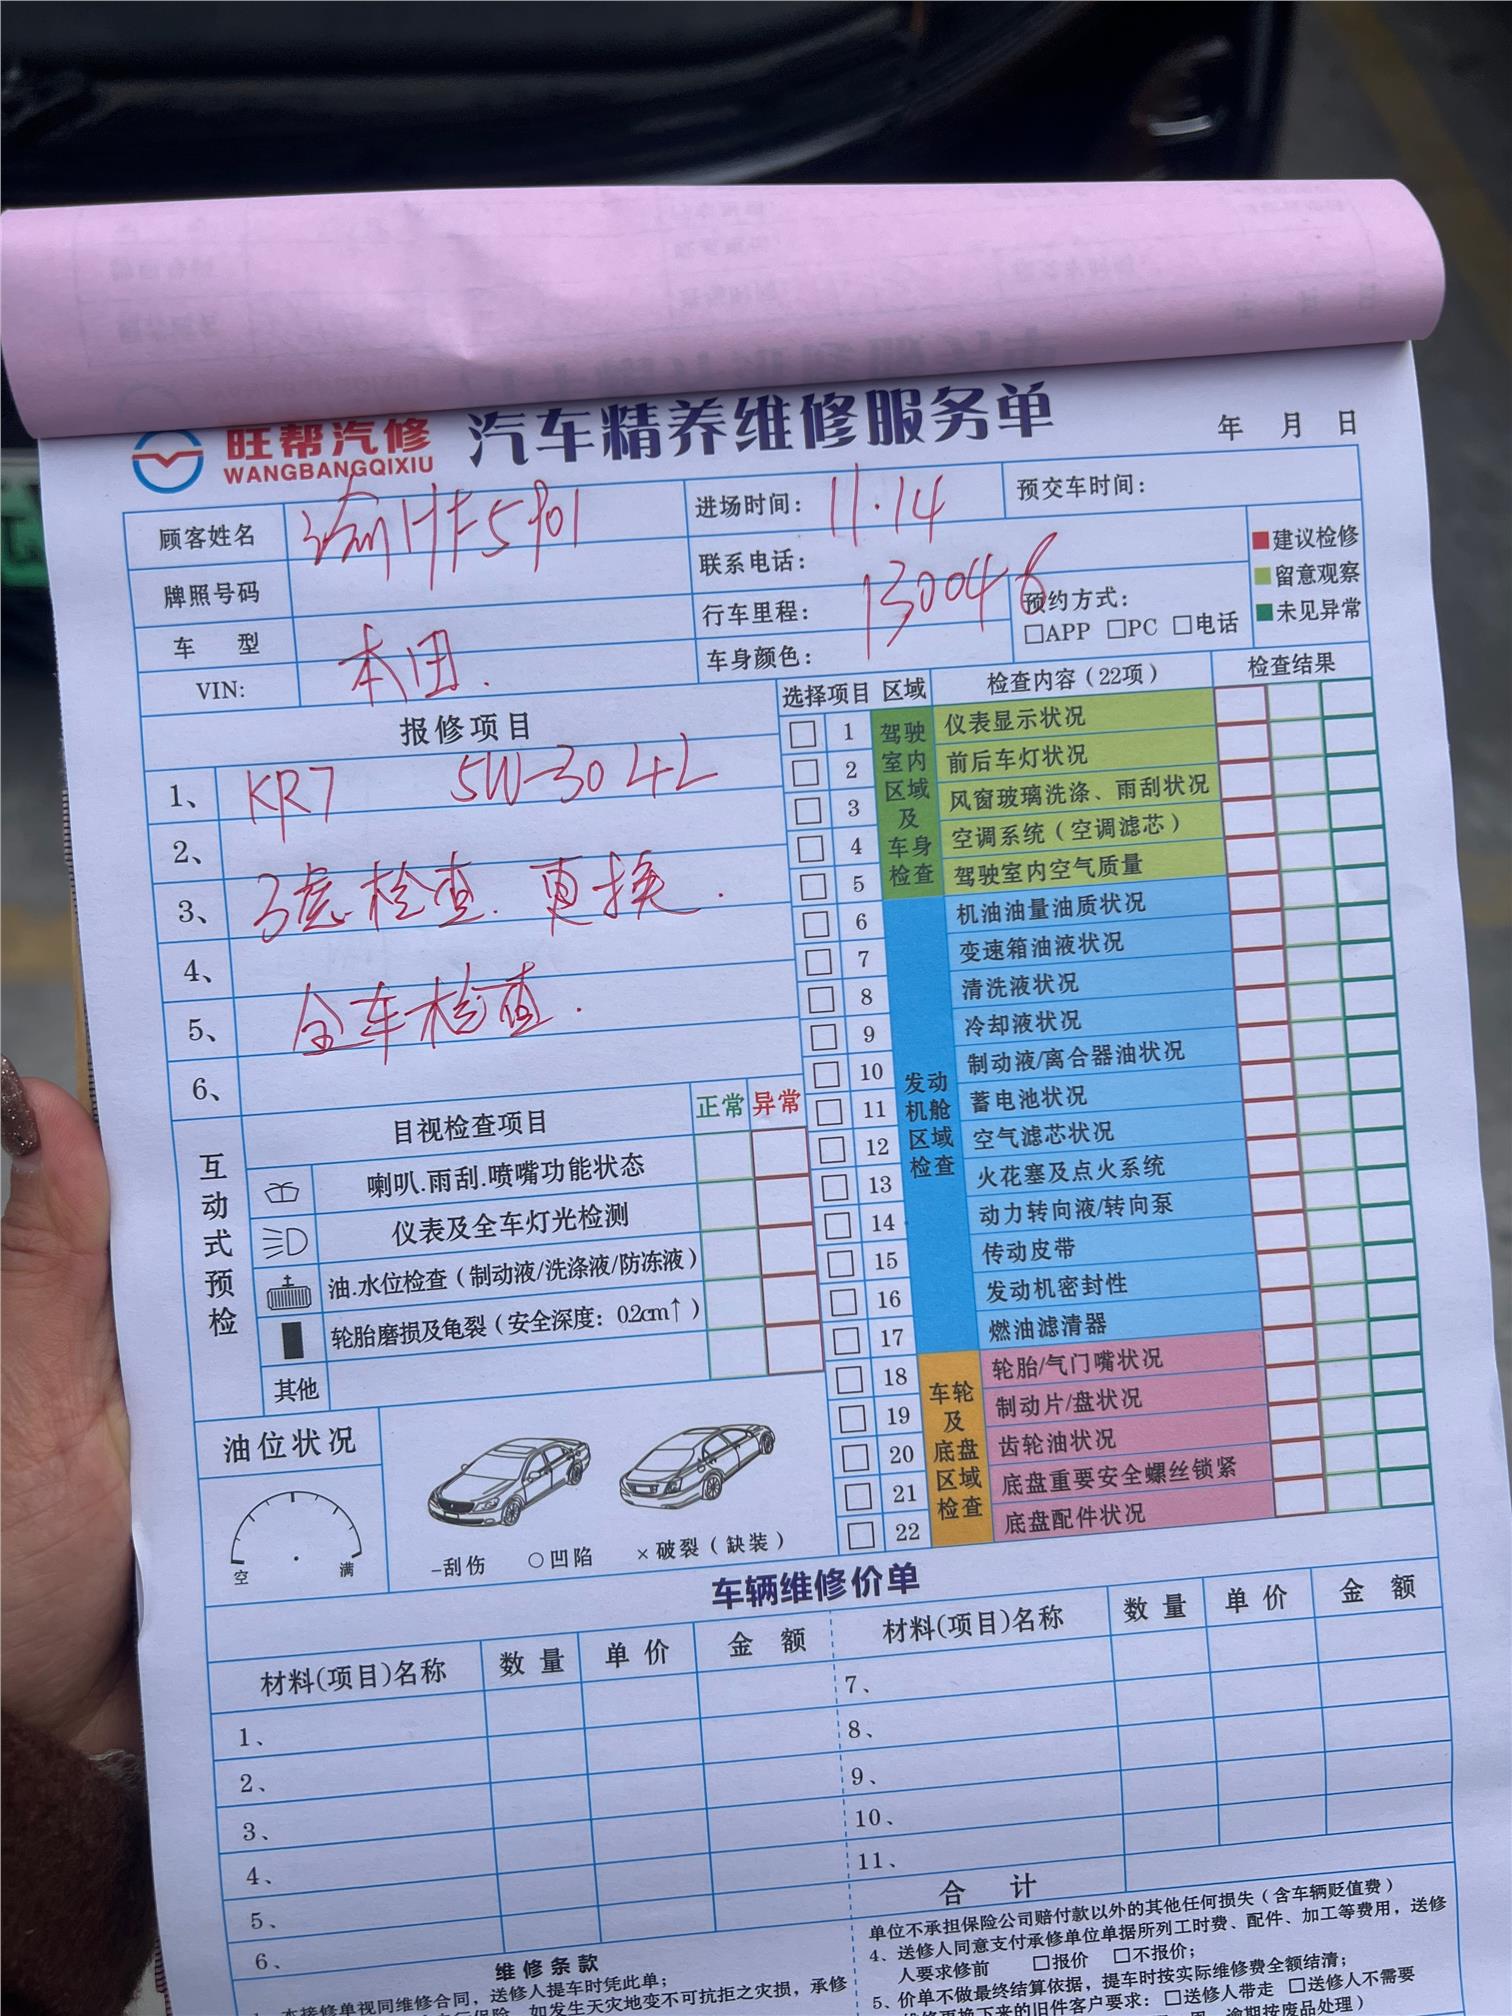 旺帮汽修
WANGBANGQIXIU
汽车精养维修服务单
年 月 日
顾客姓名
进场时间： 11.14
预交车时间：
牌照号码
联系电话：
行车里程： 130046
预约方式：
□APP □PC □电话
建议检修
留意观察
未见异常
车 型 本田.
车身颜色：
VIN:
报修项目
1、 KR7 5W-30 4L
2、
3、 3滤检查.更换.
4、
5、 全车检查.
6、
选择项目 区域 检查内容（22项） 检查结果
驾驶室内区域及车身检查
1 仪表显示状况
2 前后车灯状况
3 风窗玻璃洗涤、雨刮状况
4 空调系统（空调滤芯）
5 驾驶室内空气质量
发动机舱区域检查
6 机油油量油质状况
7 变速箱油液状况
8 清洗液状况
9 冷却液状况
10 制动液/离合器油状况
11 蓄电池状况
12 空气滤芯状况
13 火花塞及点火系统
14 动力转向液/转向泵
15 传动皮带
16 发动机密封性
17 燃油滤清器
车轮及底盘区域检查
18 轮胎/气门嘴状况
19 制动片/盘状况
20 齿轮油状况
21 底盘重要安全螺丝锁紧
22 底盘配件状况
互动式预检
目视检查项目 正常 异常
喇叭.雨刮.喷嘴功能状态
仪表及全车灯光检测
油.水位检查（制动液/洗涤液/防冻液）
轮胎磨损及龟裂（安全深度：0.2cm↑）
其他
油位状况
空 满
-刮伤 ○凹陷 ×破裂（缺装）
车辆维修价单
材料(项目)名称 数 量 单 价 金 额 材料(项目)名称 数 量 单 价 金 额
1、 7、
2、 8、
3、 9、
4、 10、
5、 11、
6、 合 计
维修条款
送修人提车时凭此单；
本接修单视同维修合同，
如发生天灾地变不可抗拒之灾损，承修
单位不承担保险公司赔付款以外的其他任何损失（含车辆贬值费）
4、送修人同意支付承修单位单据所列工时费、配件、加工等费用，送修
人要求修前 □报价 □不报价；
5、价单不做最终结算依据，提车时按实际维修费全额结清；
维修更换下来的旧件客户要求：□送修人带走 □送修人不需要
逾期按废品处理）